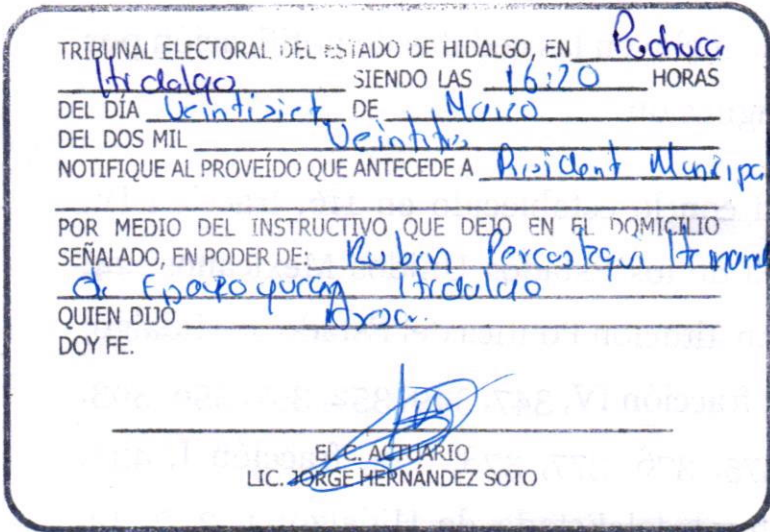 TRIBUNAL ELECTORAL DEL ESTADO DE HIDALGO, EN Pachuca
Hidalgo SIENDO LAS 16:20 HORAS
DEL DÍA Veintisiete DE Marzo
DEL DOS MIL
NOTIFIQUE AL PROVEÍDO QUE ANTECEDE A President Municipa
POR MEDIO DEL INSTRUCTIVO QUE DEJO EN EL DOMICILIO
SEÑALADO, EN PODER DE: Ruben
Epazoyucan Hidalgo
QUIEN DIJO
DOY FE.
EL C. ACTUARIO
LIC. JORGE HERNÁNDEZ SOTO